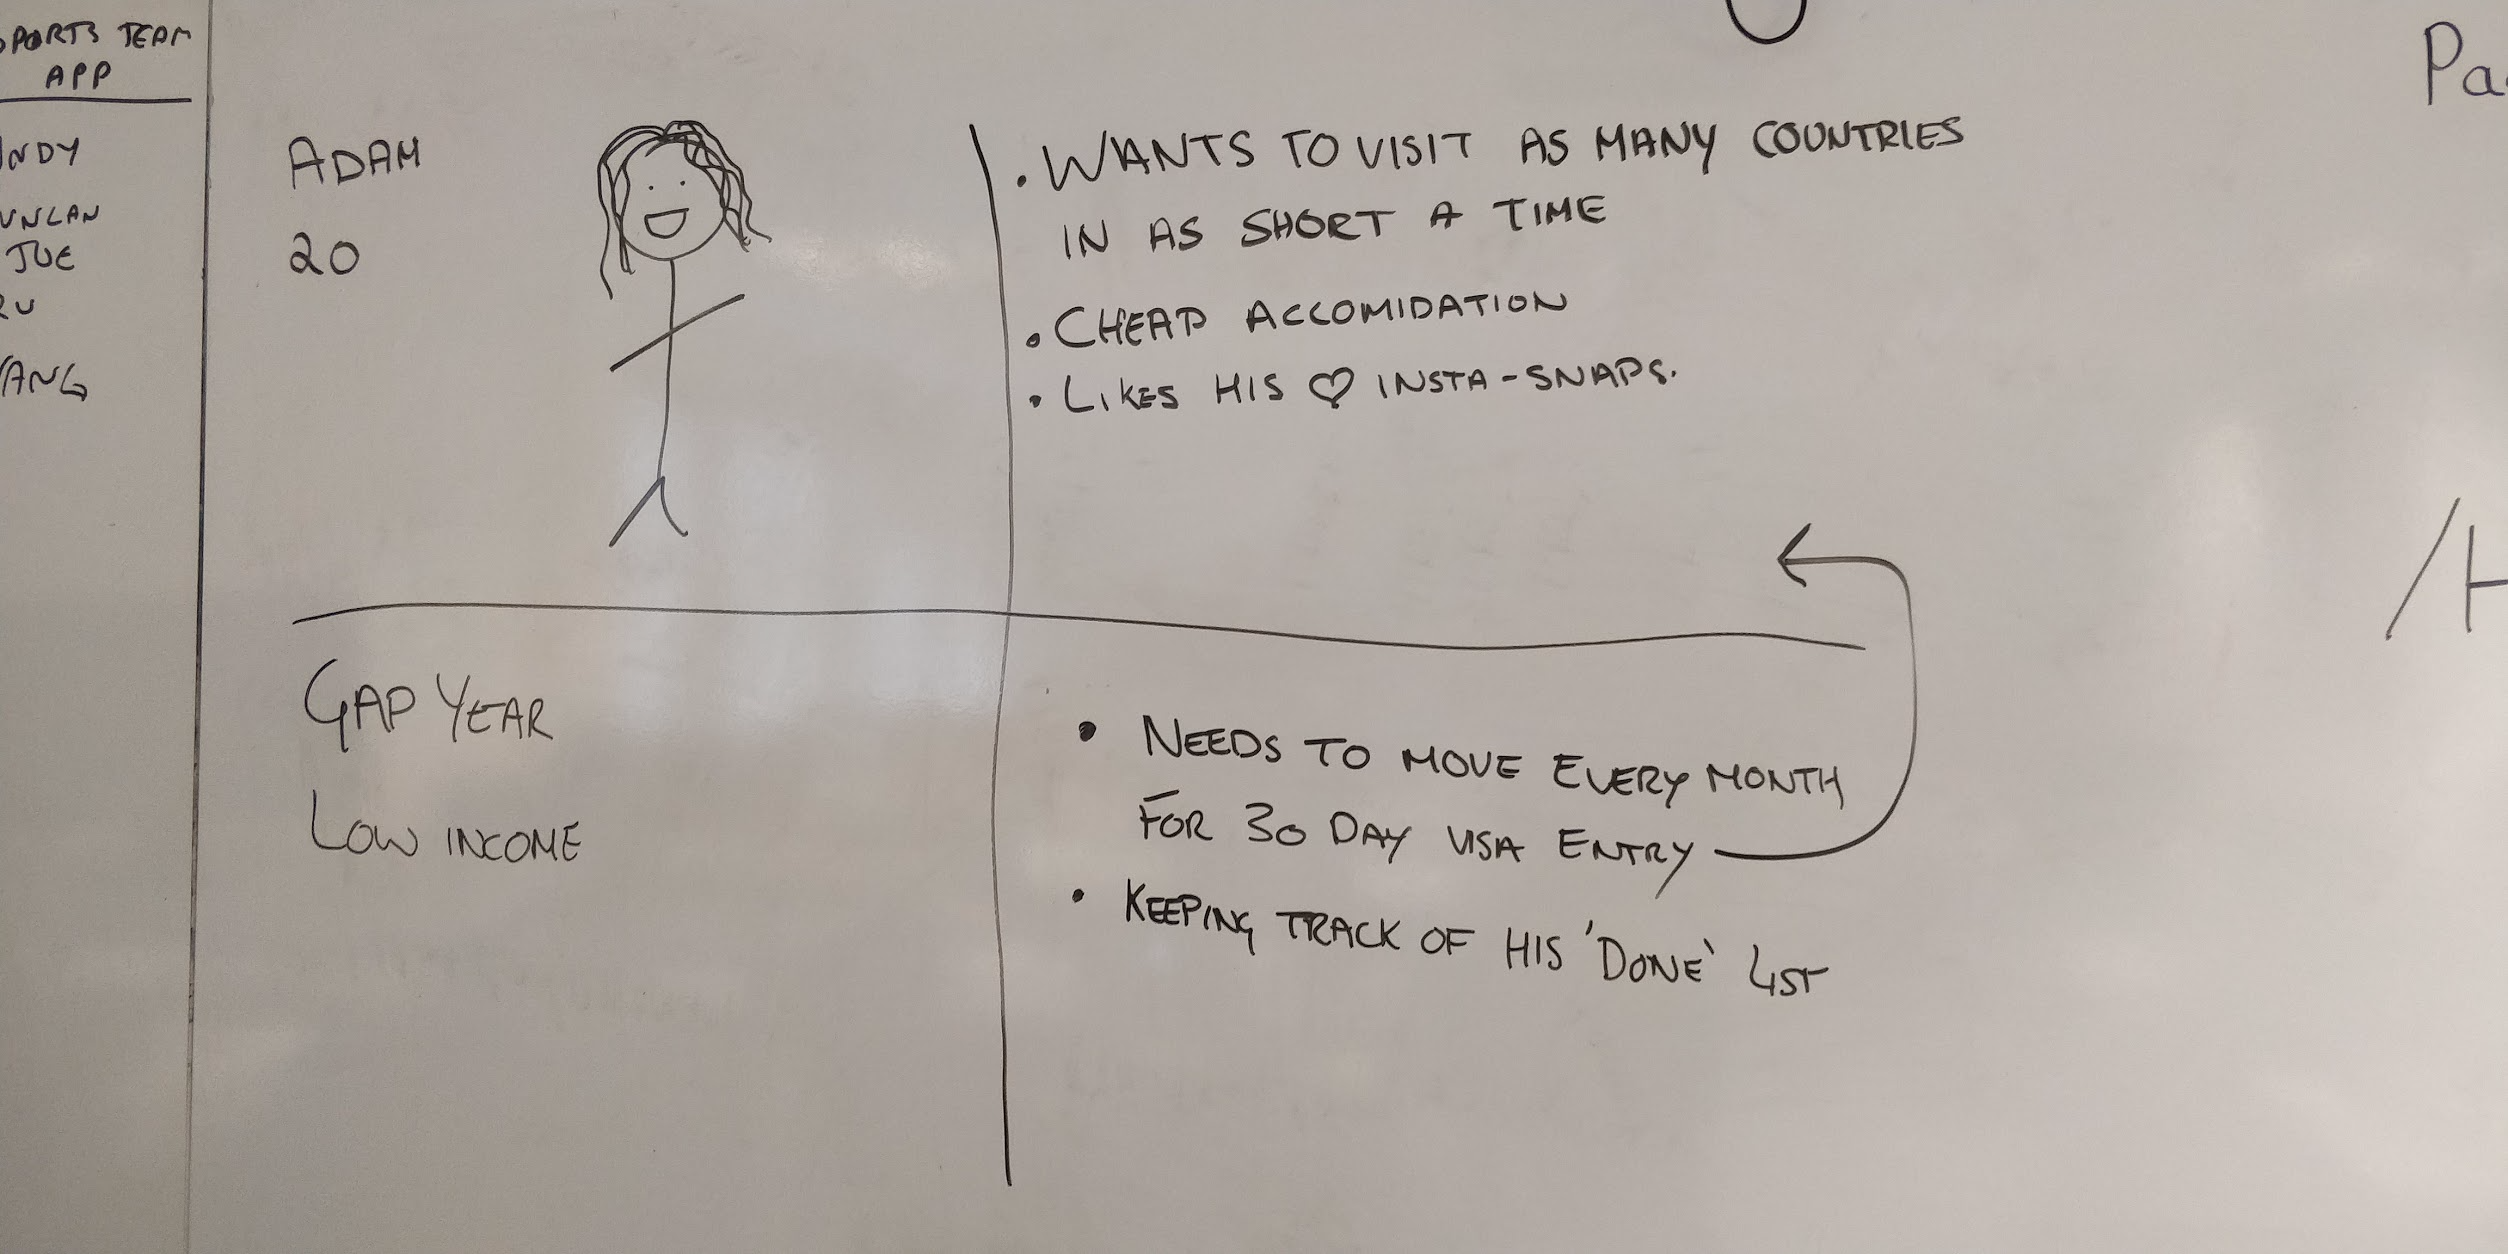 SPORTS TEAM
APP
ADAM
20
• WANTS TO VISIT AS MANY COUNTRIES
IN AS SHORT A TIME
• CHEAP ACCOMIDATION
• LIKES HIS ♡ INSTA-SNAPS.
GAP YEAR
LOW INCOME
• NEEDS TO MOVE EVERY MONTH
FOR 30 DAY VISA ENTRY
• KEEPING TRACK OF HIS 'DONE' LIST